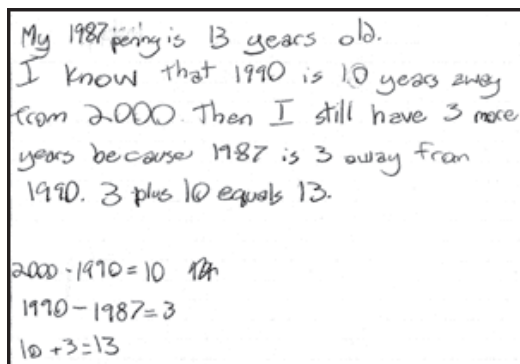 My 1987 penny is 13 years old.
I know that 1990 is 10 years away
from 2000. Then I still have 3 more
years because 1987 is 3 away from
1990. 3 plus 10 equals 13.
2000 - 1990 = 10
1990 - 1987 = 3
10 + 3 = 13